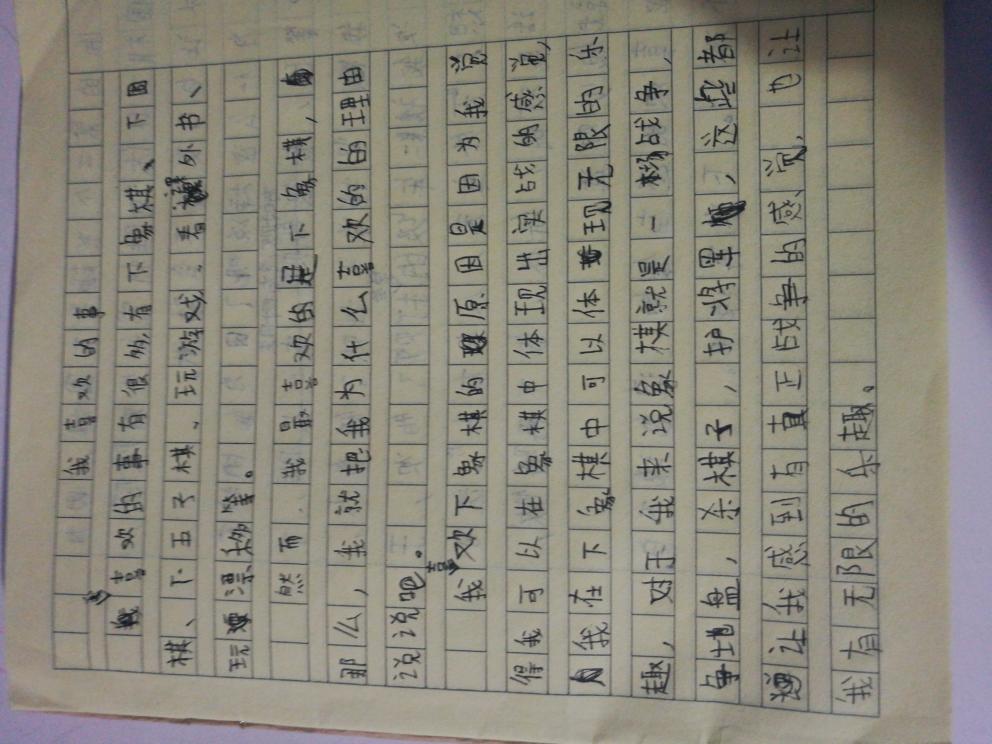 我喜欢的事
我喜欢的事有很多,有下象棋、下围
棋、下五子棋、玩游戏、看课外书、
玩漂移等。
然而,我最喜欢的是下象棋,
那么,我就把我为什么喜欢的理由
说说吧。
我喜欢下象棋的原因是因为我觉
得我可以在象棋中体现出实战的感觉,
我在下象棋中可以体现无限的乐
趣,对于我来说象棋就是一场战争,
争地盘,杀棋子,护将军,这些都
让我感到有真正战争的感觉,也让
我有无限的乐趣。